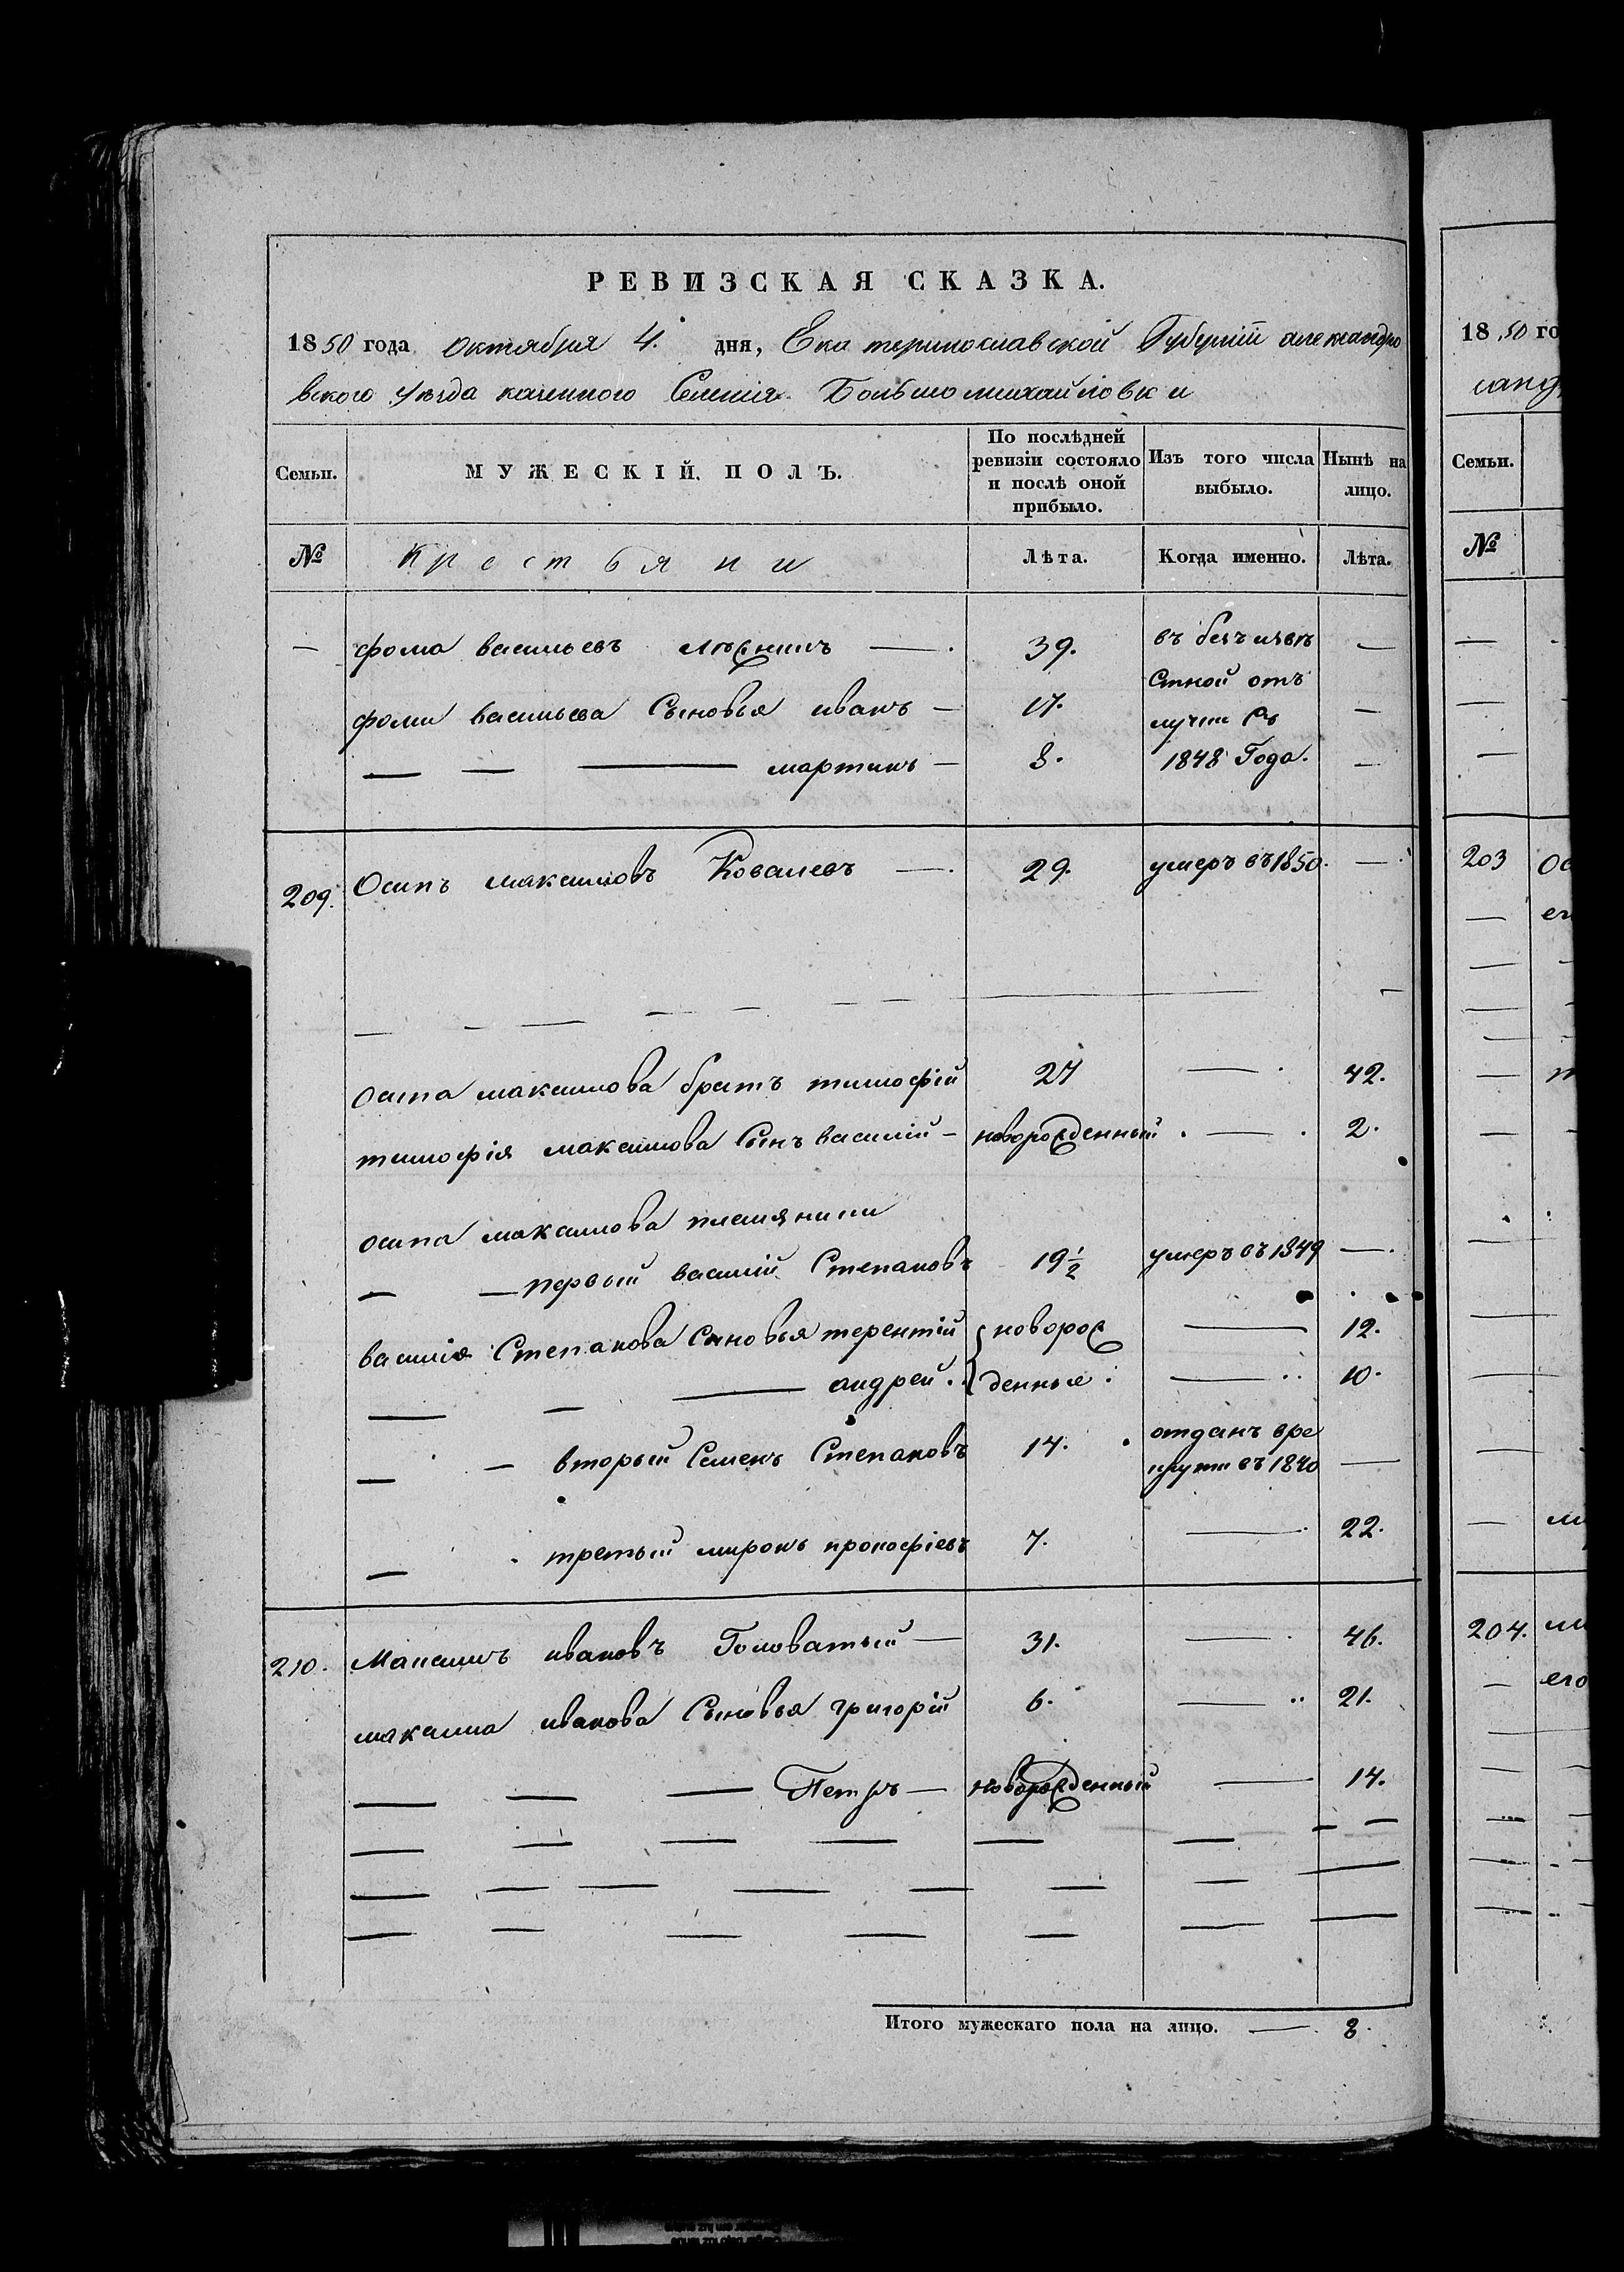 РЕВИЗСКАЯ СКАЗКА.
1850 года Октября 4. дня, Екатеринославской Губернiй александро
вского уѣзда казенного Селенiя Большомихайловки
Семьи. МУЖЕСКІЙ ПОЛЪ. По послѣдней ревизіи состояло и послѣ оной прибыло. Изъ того числа выбыло. Нынѣ на лицо.
№ Крестьяни Лѣта. Когда именно. Лѣта.
— фома васильевъ — 39. въ безъизвѣ —
стной отъ
фоми васильева Сыновья иванъ — 17. лучки съ —
— — — мартинъ — 8. 1848 Года. —
209. Осипъ максимовъ Ковалевъ — 29. умеръ въ 1850. —
осипа максимова братъ тимофiй 27 — 42.
тимофiя максимова Сынъ василiй — новорожденный — 2.
осипа максимова племянники
— — первый василiй Степановъ 19½ умеръ въ 1849 —
василiя Степанова Сыновья терентiй { новорож — 12.
— — — андрей { денные — 10.
— — вторый Семенъ Степановъ 14. отданъ вре
круты въ 1840 —
— третый миронъ прокофiевъ 7. — 22.
210. Максимъ ивановъ Головатый — 31. — 46.
максима иванова Сыновья григорiй 6. — 21.
— — — Петръ — новорожденный — 14.
Итого мужескаго пола на лицо. — 8.
18 50 го
Семьи.
№
203
204.